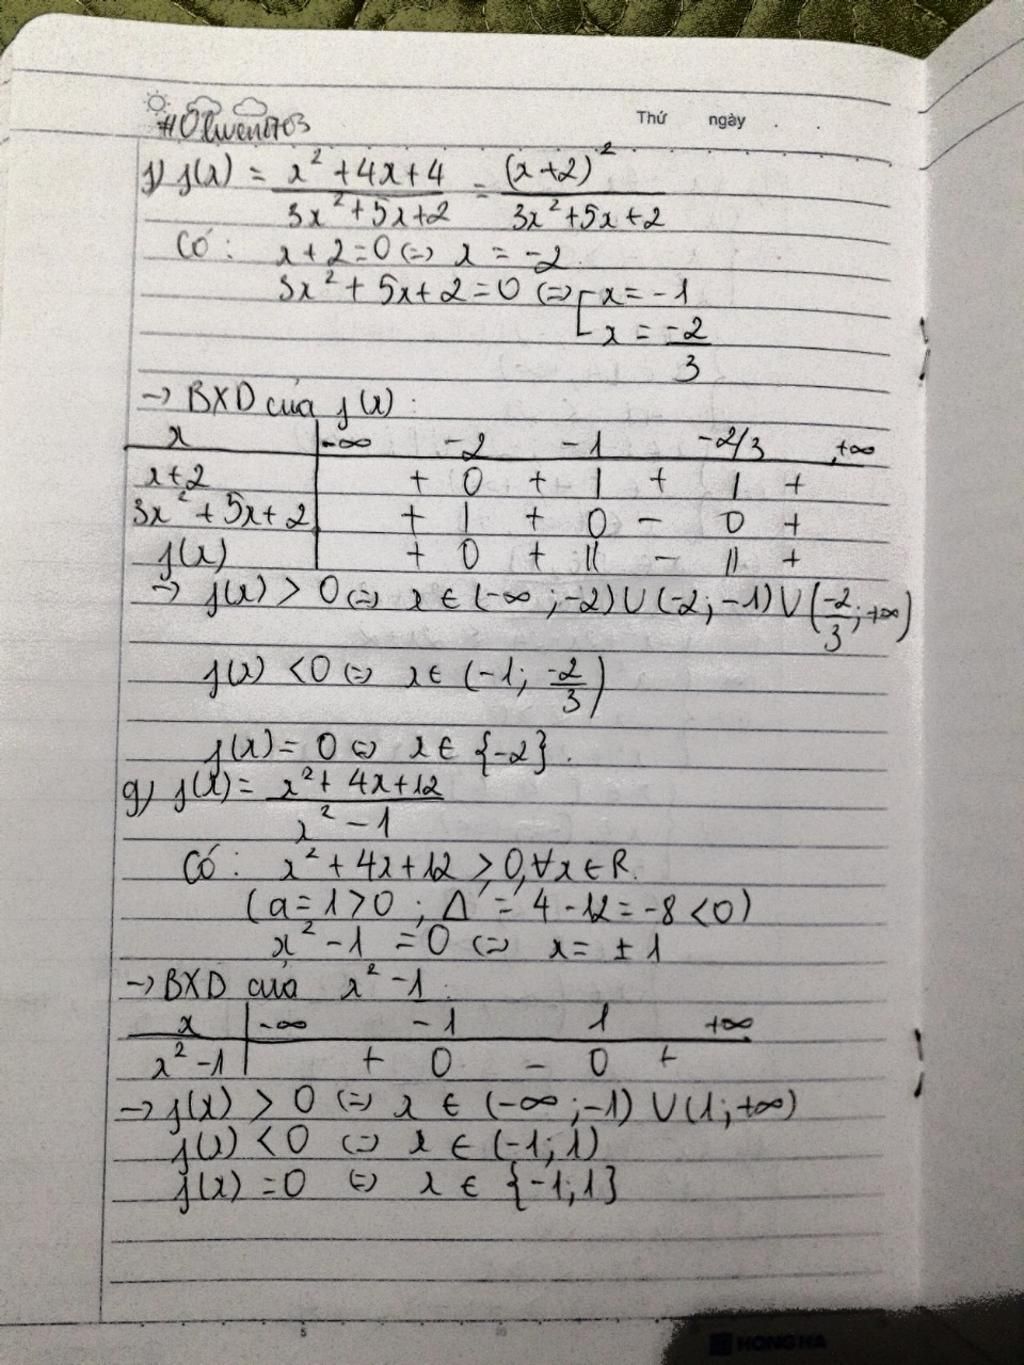 Thứ ngày . .
f) f(x) = x² + 4x + 4 / 3x² + 5x + 2 = (x + 2)² / 3x² + 5x + 2
Có: x + 2 = 0 (=) x = -2
3x² + 5x + 2 = 0 (=) [ x = -1
x = -2/3
-> BXD của f(x):
x | -∞ -2 -1 -2/3 +∞
x + 2 | + 0 + | + | +
3x² + 5x + 2 | + | + 0 - 0 +
f(x) | + 0 + || - || +
-> f(x) > 0 (=) x ∈ (-∞; -2) ∪ (-2; -1) ∪ (-2/3; +∞)
f(x) < 0 (=) x ∈ (-1; -2/3)
f(x) = 0 (=) x ∈ {-2}.
g) f(x) = x² + 4x + 12 / x² - 1
Có: x² + 4x + 12 > 0, ∀x ∈ R.
(a = 1 > 0; Δ' = 4 - 12 = -8 < 0)
x² - 1 = 0 (=) x = ± 1
-> BXD của x² - 1:
x | -∞ -1 1 +∞
x² - 1 | + 0 - 0 +
-> f(x) > 0 (=) x ∈ (-∞; -1) ∪ (1; +∞)
f(x) < 0 (=) x ∈ (-1; 1)
f(x) = 0 (=) x ∈ {-1; 1}
HONG HA